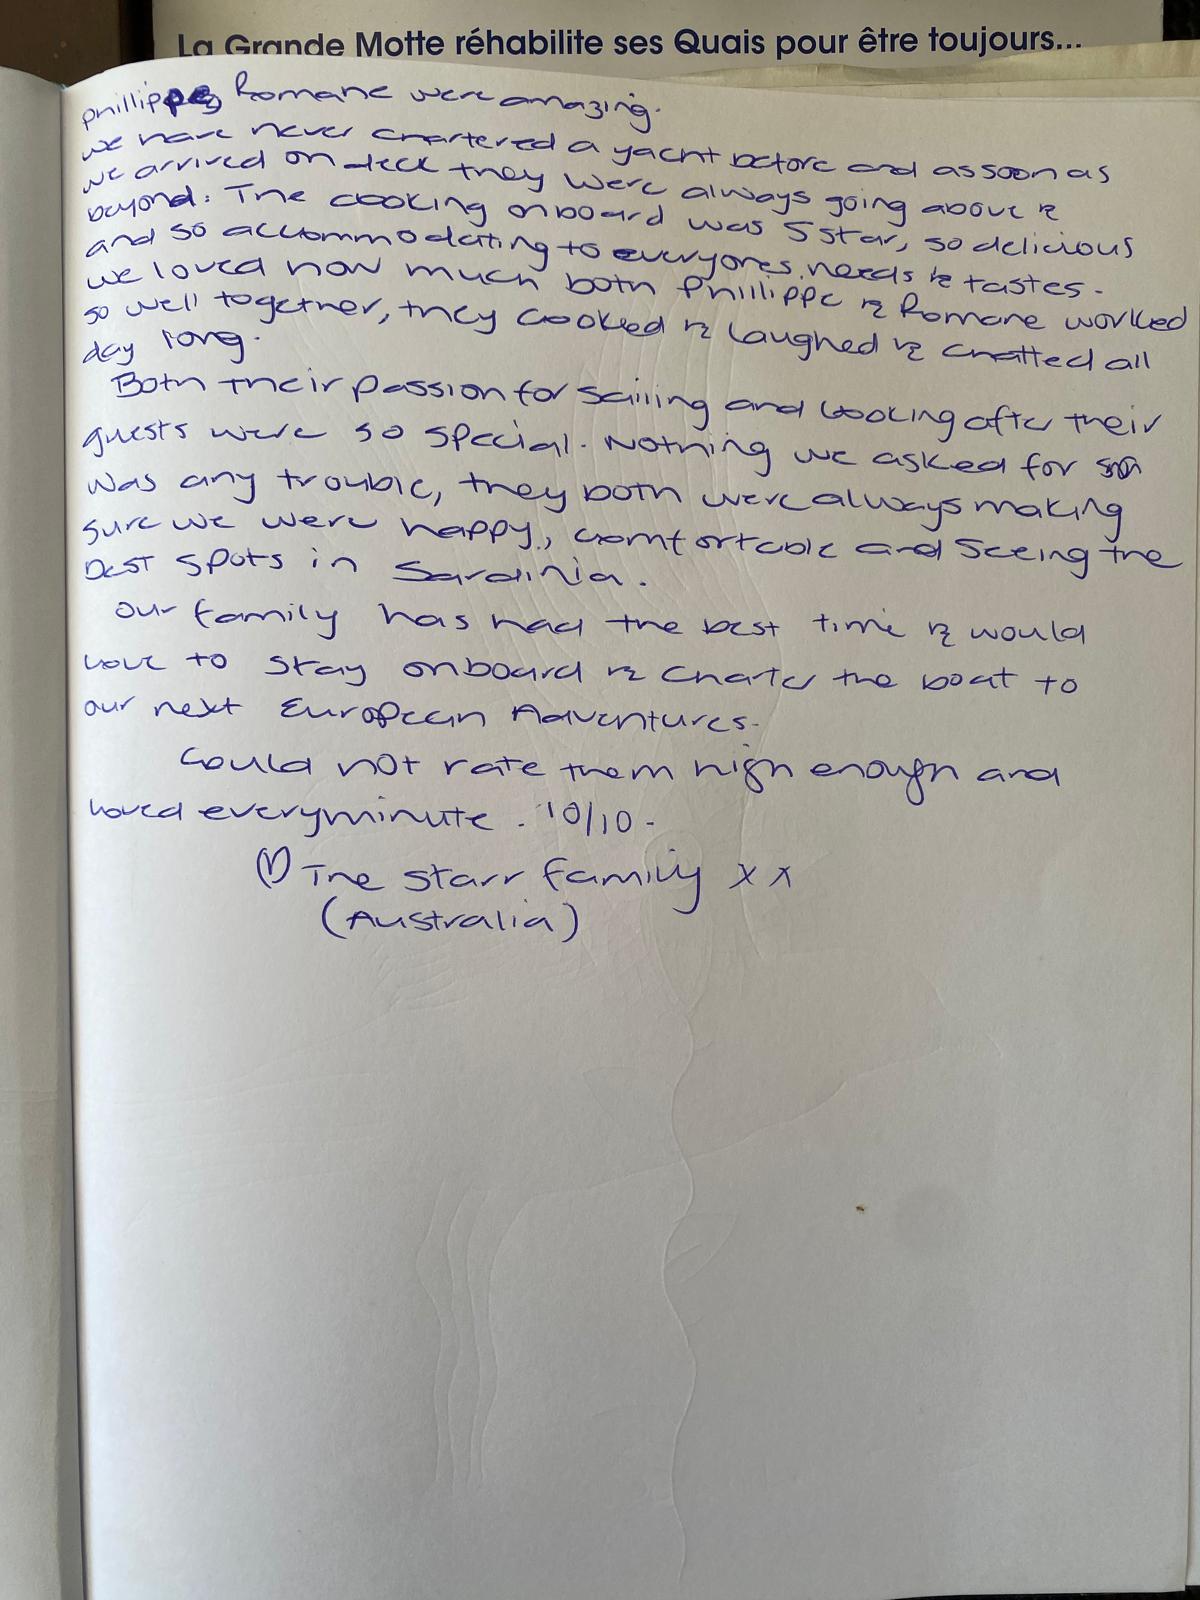 La Grande Motte réhabilite ses Quais pour être toujours...
Phillippe & Romane were amazing.
we have never chartered a yacht before and as soon as
we arrived on deck they were always going above &
beyond. The cooking onboard was 5 star, so delicious
and so accommodating to everyones needs & tastes.
we loved how much both Phillippe & Romane worked
so well together, they cooked & laughed & chatted all
day long.
Both their passion for sailing and looking after their
guests were so special. Nothing we asked for
was any trouble, they both were always making
sure we were happy, comfortable and seeing the
best spots in Sardinia.
our family has had the best time & would
love to stay onboard & charter the boat to
our next European Adventures.
Could not rate them high enough and
loved every minute. 10/10.
♡ The Starr family x x
(Australia)